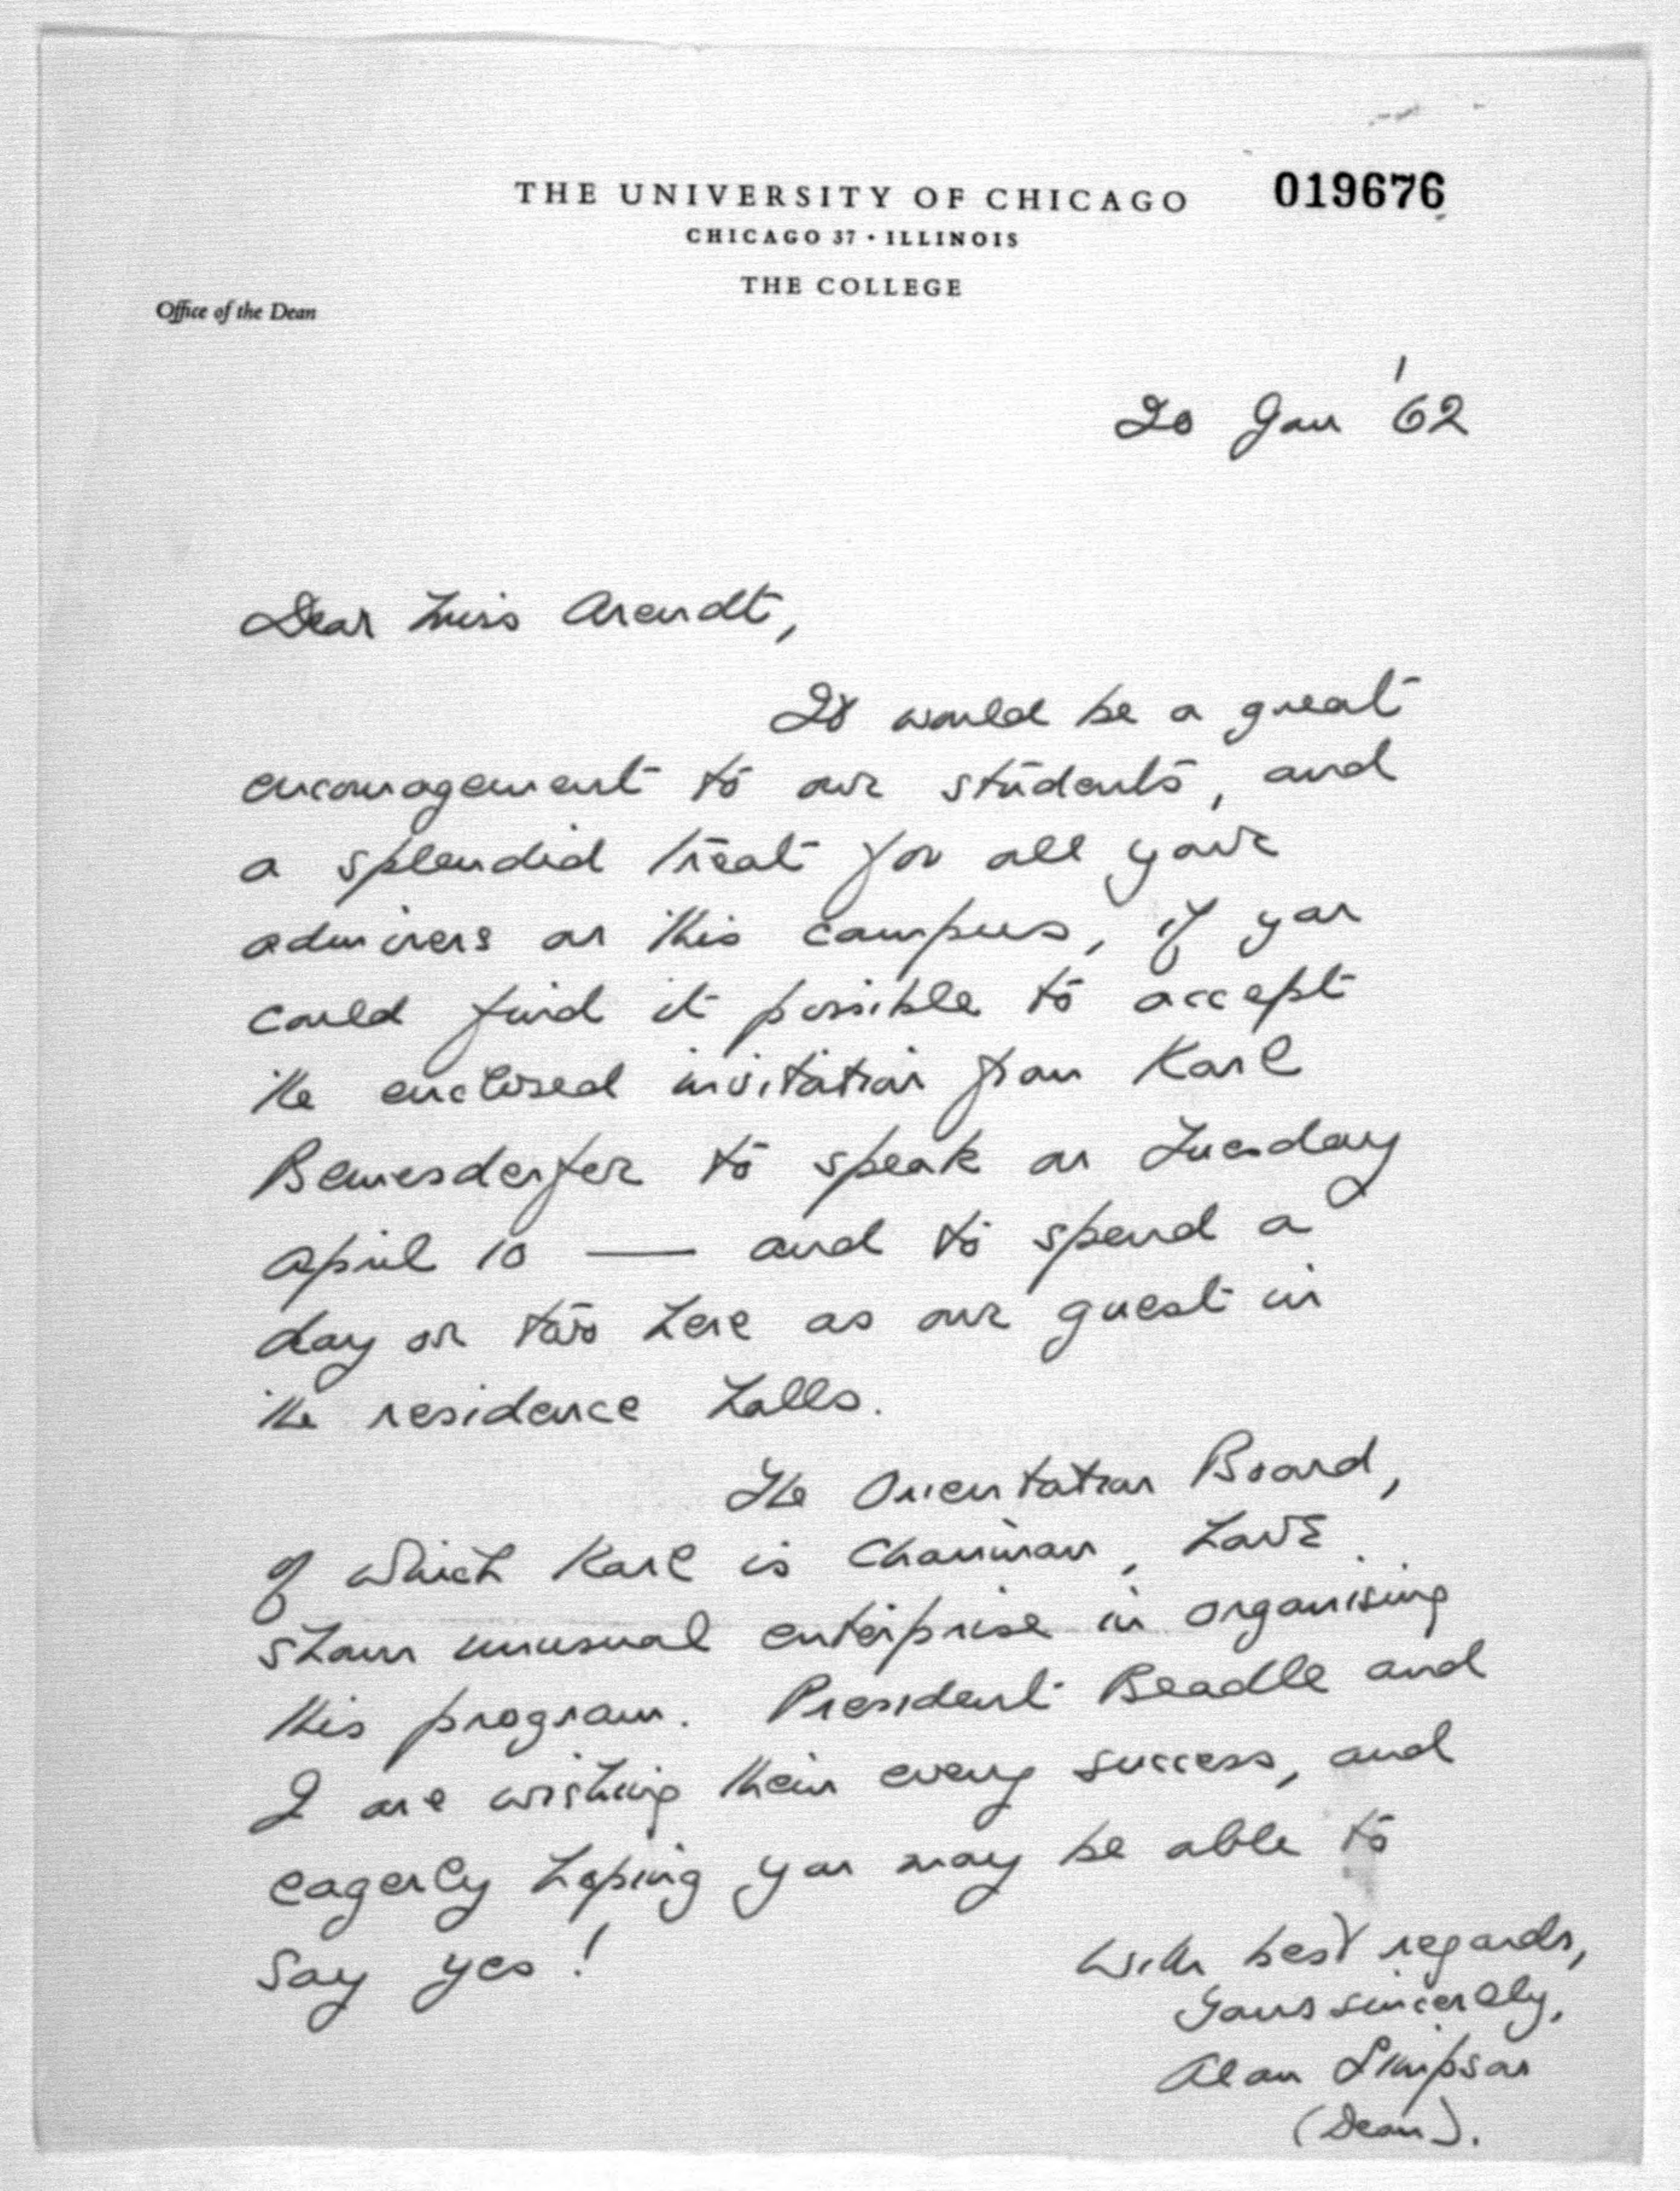 THE UNIVERSITY OF CHICAGO 019676
CHICAGO 37 · ILLINOIS
THE COLLEGE
Office of the Dean
20 Jan '62
Dear Miss Arendt,
It would be a great
encouragement to our students, and
a splendid treat for all your
admirers on this campus, if you
could find it possible to accept
the enclosed invitation from Karl
Bemesderfer to speak on Tuesday
April 10 — and to spend a
day or two here as our guest in
the residence halls.
The Orientation Board,
of which Karl is Chairman, have
shown unusual enterprise in organising
this program. President Beadle and
I are wishing them every success, and
eagerly hoping you may be able to
say yes!
With best regards,
Yours sincerely,
Alan Simpson
(Dean).